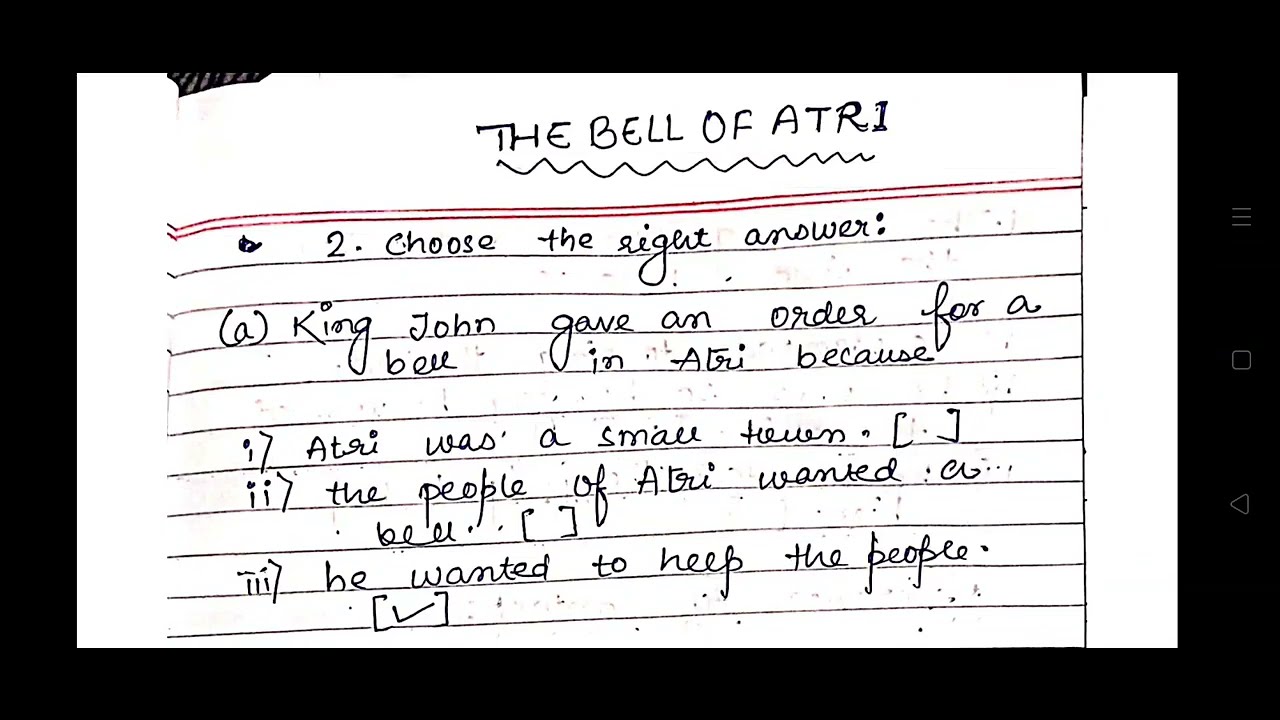 THE BELL OF ATRI
2. Choose the right answer:
(a) King John gave an order for a
bell in Atri because
i) Atri was a small town. [ ]
ii) the people of Atri wanted a
bell. [ ]
iii) he wanted to help the people.
[✓]